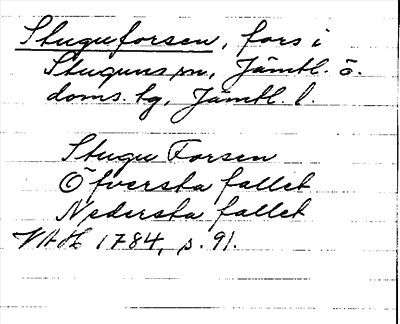 Stuguforsen, fors i
Stuguns sn, Jämtl. ö.
doms. tg, Jämtl. l.
Stugu Forsen
Öfversta fallet
Nedersta fallet
VAH 1784, s. 91.